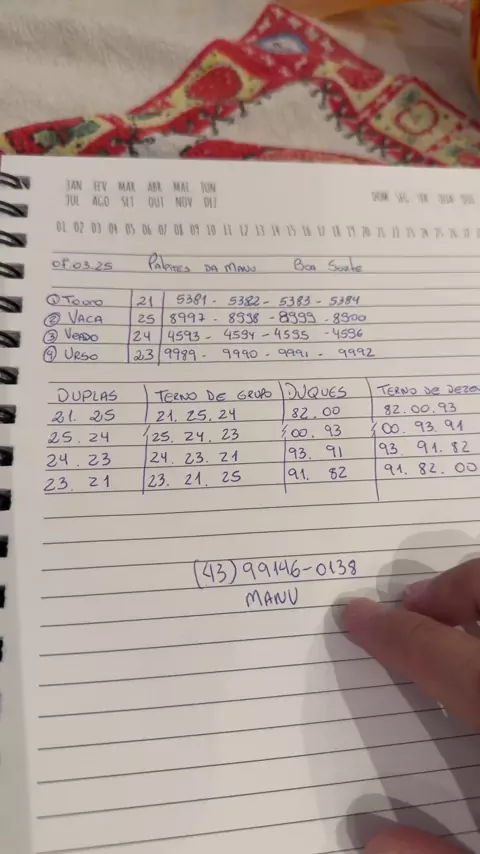 JAN FEV MAR ABR MAI JUN
JUL AGO SET OUT NOV DEZ
DOM SEG TER QUA QUI
01 02 03 04 05 06 07 08 09 10 11 12 13 14 15 16 17 18 19 20 21 22 23 24 25 26 27
07.03.25 PALPITES DA MANU BOA SORTE
① TOURO 21 5381 - 5382 - 5383 - 5384
② VACA 25 8997 - 8998 - 8999 - 8900
③ VEADO 24 4593 - 4594 - 4595 - 4596
④ URSO 23 9989 - 9990 - 9991 - 9992
DUPLAS TERNO DE GRUPO DUQUES TERNO DE DEZE
21. 25 21. 25. 24 82. 00 82. 00. 93
25. 24 25. 24. 23 00. 93 00. 93. 91
24. 23 24. 23. 21 93. 91 93. 91. 82
23. 21 23. 21. 25 91. 82 91. 82. 00
(43) 99146-0138
MANU